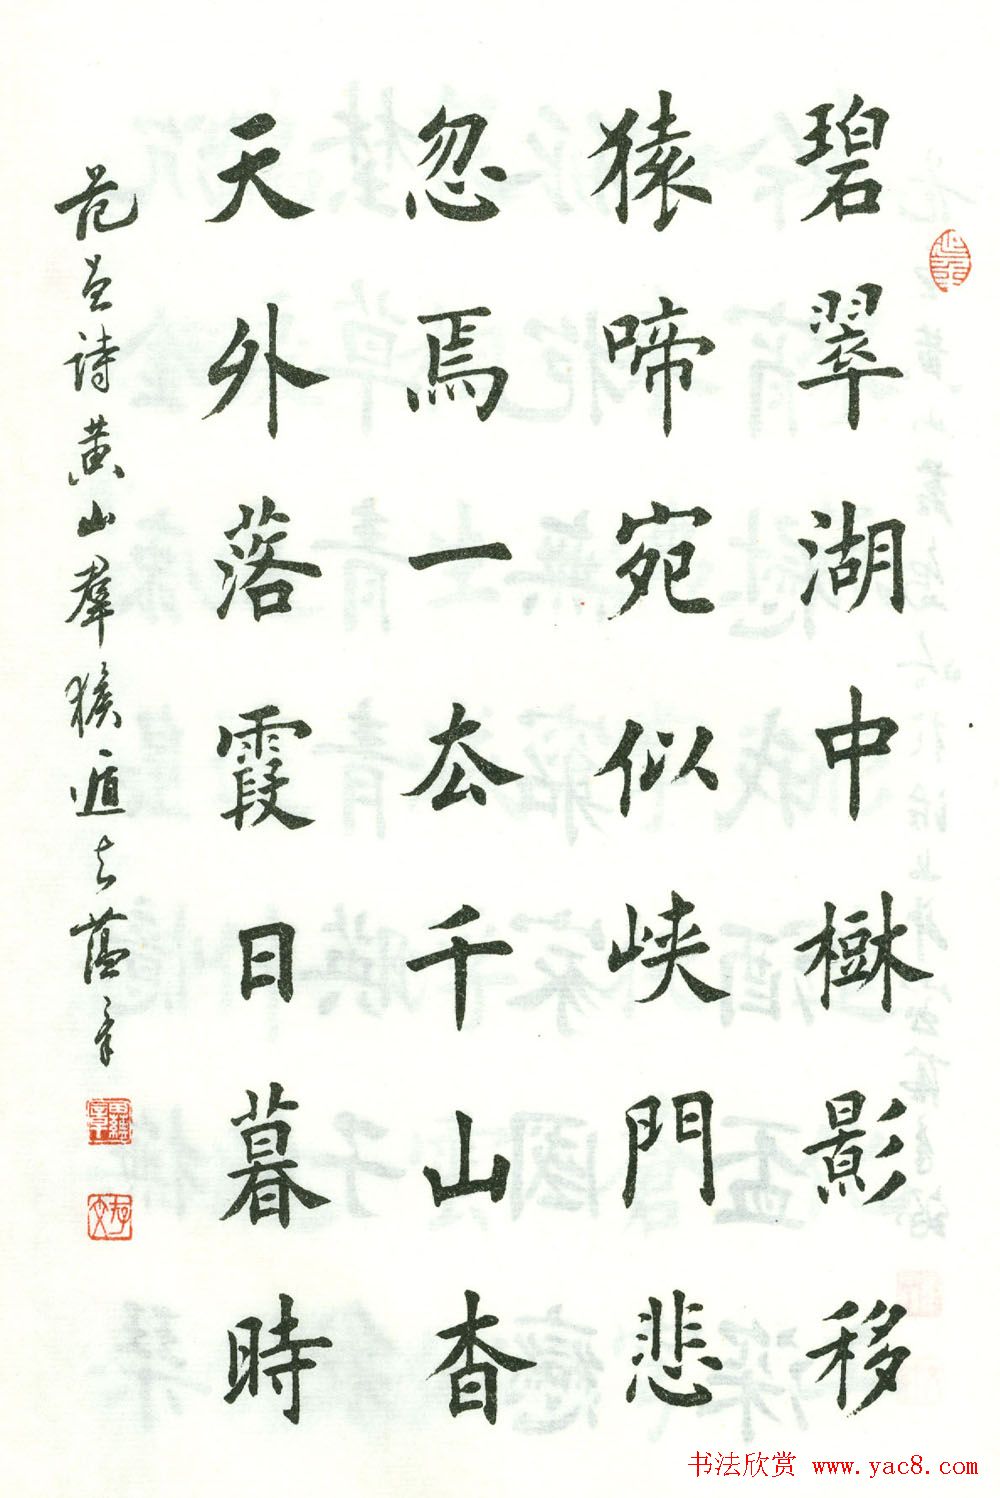 碧翠湖中樹影移
猿啼宛似峽門悲
忽焉一厺千山杳
天外落霞日暮時
范曾詩黃山羣猴遁去蘊章
书法欣赏 www.yac8.com